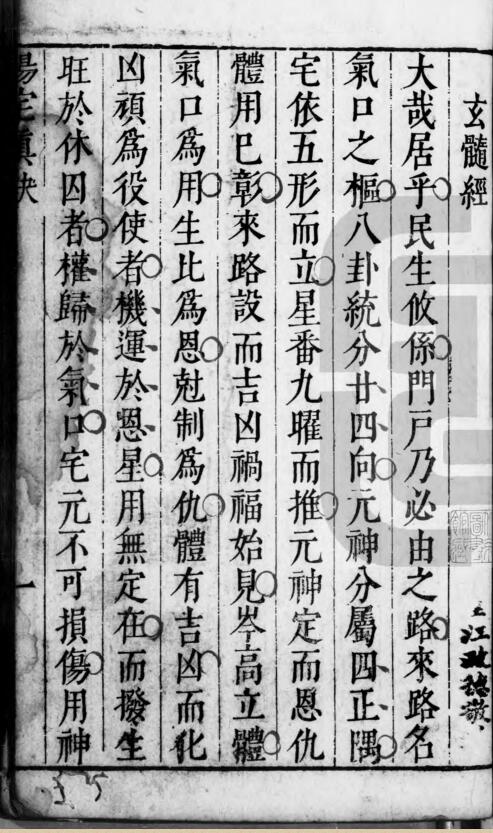 玄髓經
大哉居乎民生攸係門戸乃必由之路來路名
氣口之樞八卦統分廿四向元神分屬四正隅
宅依五形而立星番九曜而推元神定而恩仇
體用已彰來路設而吉凶禍福始見岑高立體
氣口爲用生比爲恩尅制爲仇體有吉凶而化
凶頑爲役使者機運於恩星用無定在而撥生
旺於休囚者權歸於氣口宅元不可損傷用神
陽宅真訣
一